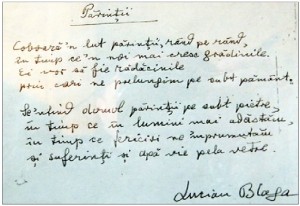 Părinții
Coboară'n lut părinții, rând pe rând,
în timp ce'n noi mai cresc grădinile.
Ei vor să fie rădăcinile
prin cari ne prelungim pe subt pământ.
Se'ntind domol părinții pe subt pietre,
în timp ce în lumini mai adăstăm,
în timp ce fericiri ne'mprumutăm
și suferinți și apă vie pela vetre.
Lucian Blaga